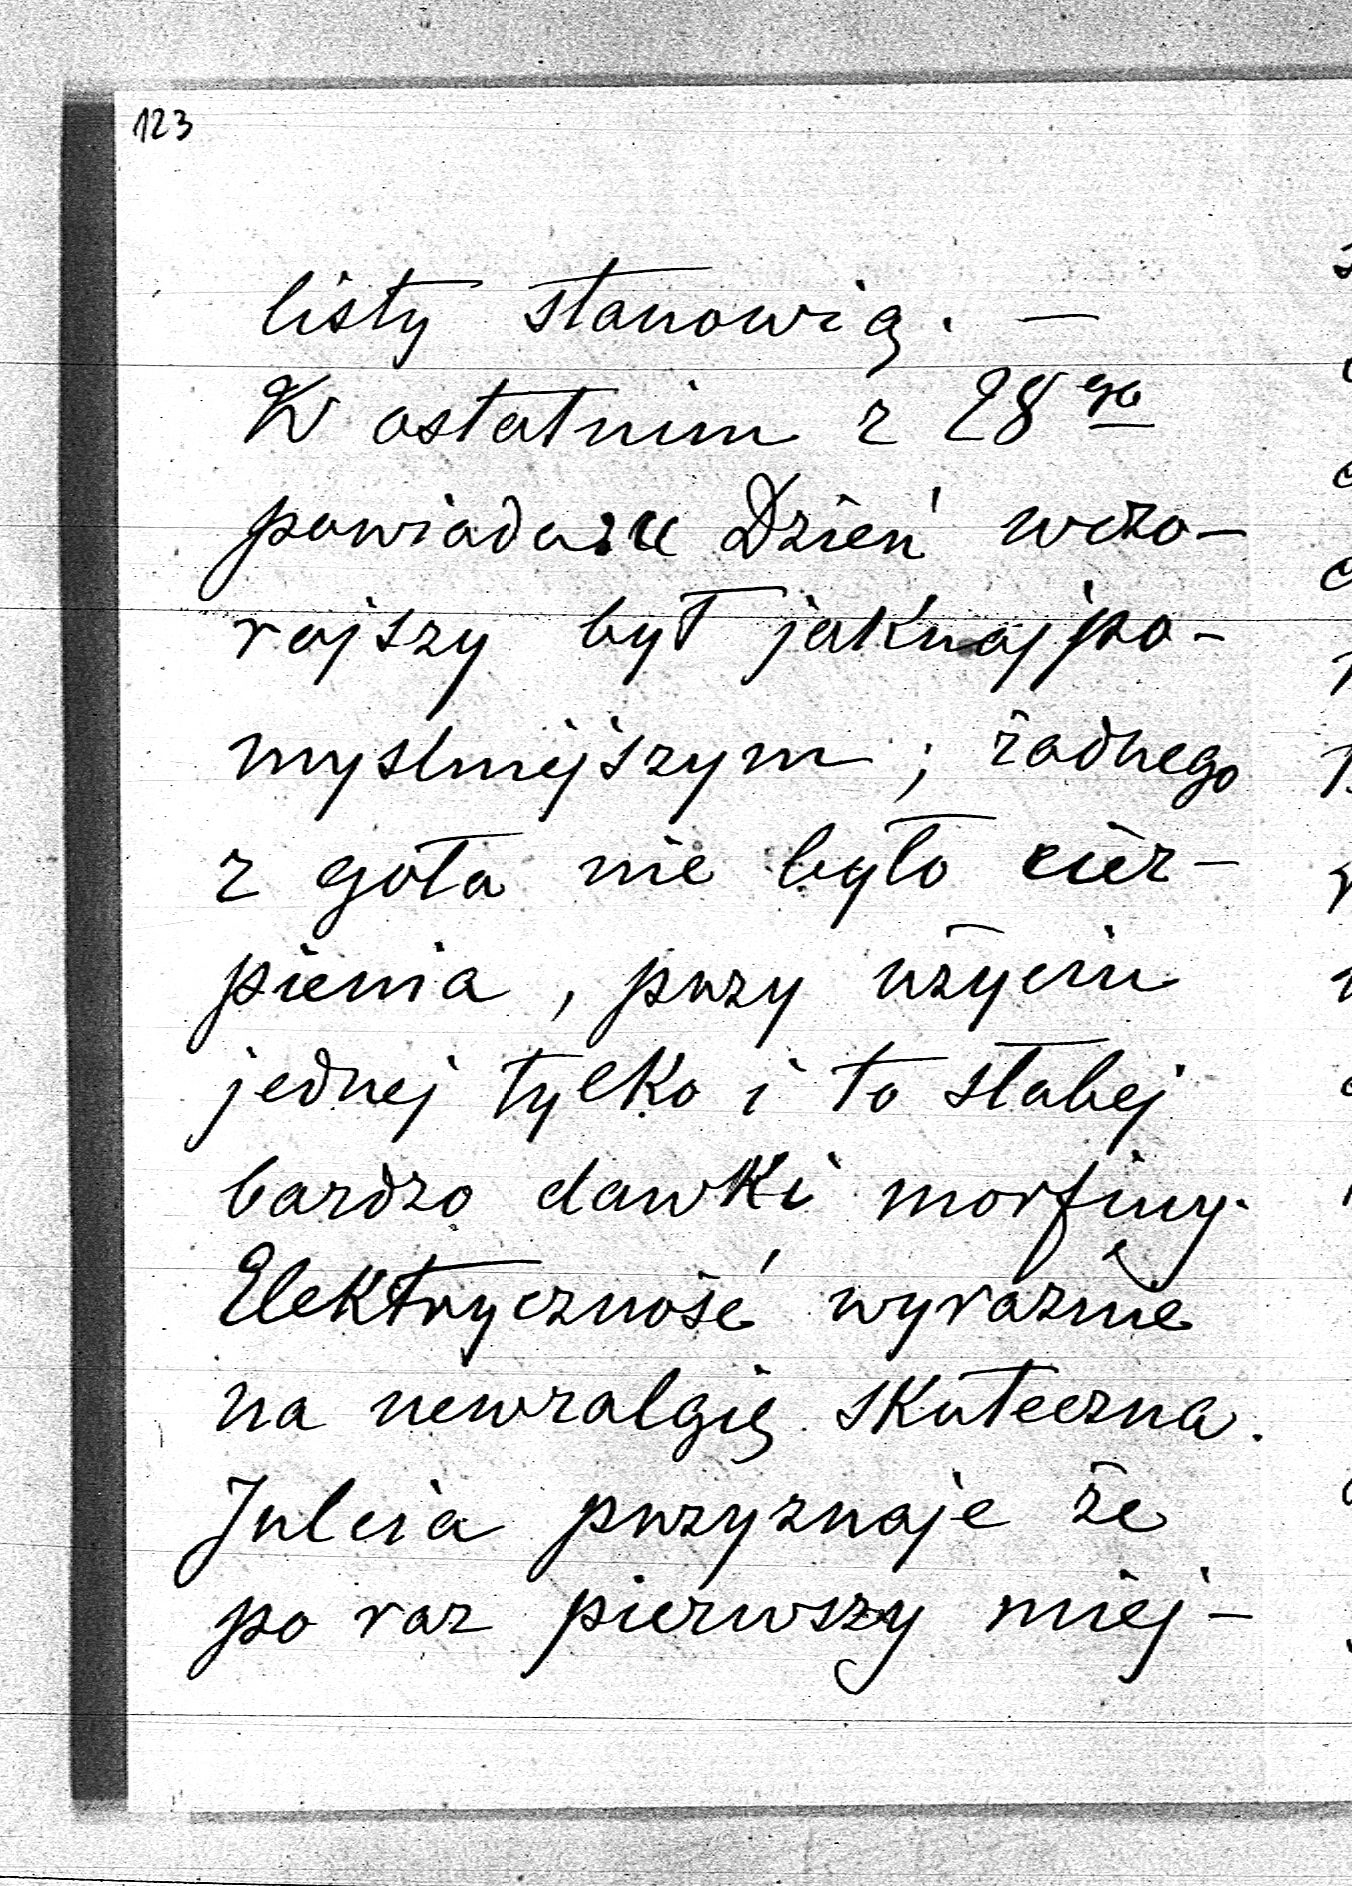 123
listy stanowią. —
W ostatnim z 28go
powiada:
Dzień wczo-
rajszy był jaknajpo-
myslniejszym; żadnego
z goła nie było cier-
pienia, przy użyciu
jednej tylko i to słabej
bardzo dawki morfiny.
Elektryczność wyraźnie
na newralgię skuteczna.
Julcia przyznaje że
po raz pierwszy miej-